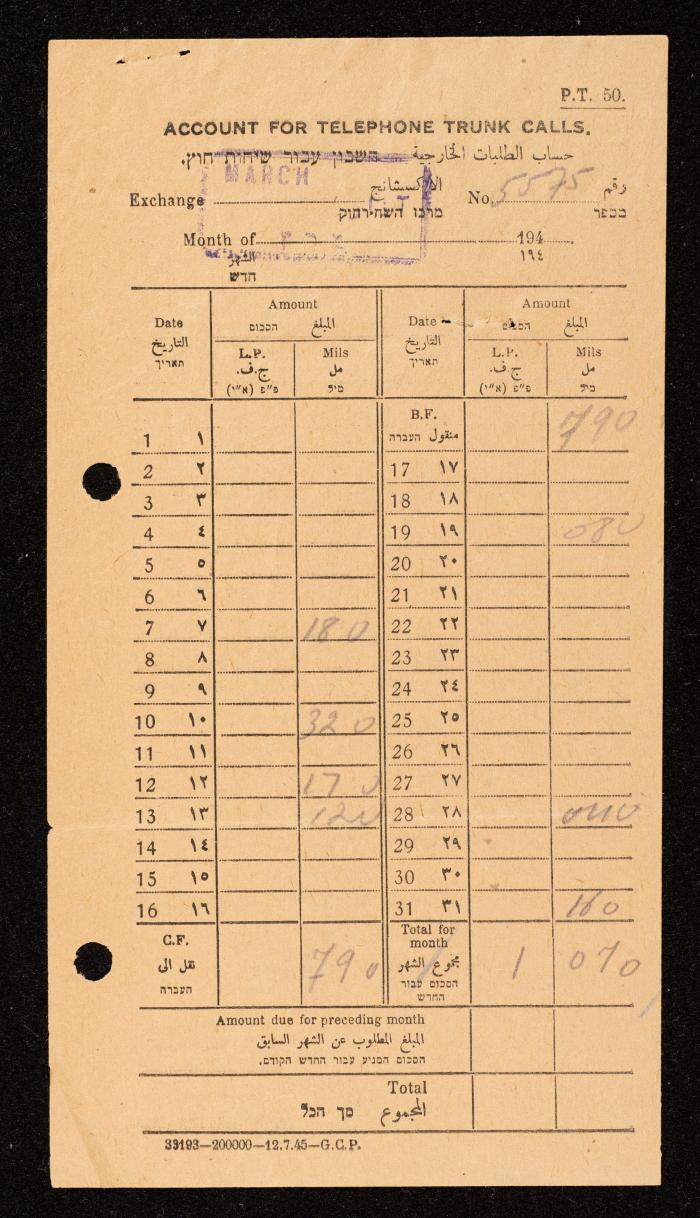 P.T. 50.
ACCOUNT FOR TELEPHONE TRUNK CALLS.
חשבון עבור שיחות חוץ. حساب الطلبات الخارجية
MARCH
Exchange الاكسشانج No. 5575 رقم
מספר
Month of 194
الشهر ١٩٤
חדש
Date Amount Date Amount
التاريخ הסכום المبلغ التاريخ הסכום المبلغ
תאריך L.P. Mils תאריך L.P. Mils
ج.ف. مل ج.ف. مل
פ"פ (א"י) מיל פ"פ (א"י) מיל
B.F.
1 ١ העברה منقول 790
2 ٢ 17 ١٧
3 ٣ 18 ١٨
4 ٤ 19 ١٩ 080
5 ٥ 20 ٢٠
6 ٦ 21 ٢١
7 ٧ 180 22 ٢٢
8 ٨ 23 ٢٣
9 ٩ 24 ٢٤
10 ١٠ 320 25 ٢٥
11 ١١ 26 ٢٦
12 ١٢ 170 27 ٢٧
13 ١٣ 120 28 ٢٨ 040
14 ١٤ 29 ٢٩
15 ١٥ 30 ٣٠
16 ١٦ 31 ٣١ 160
C.F. Total for month
نقل الى 790 مجموع الشهر 1 070
העברה הסכום עבור החדש
Amount due for preceding month
المبلغ المطلوب عن الشهر السابق
הסכום המגיע עבור החדש הקודם.
Total
סך הכל المجموع
33193—200000—12.7.45—G.C.P.